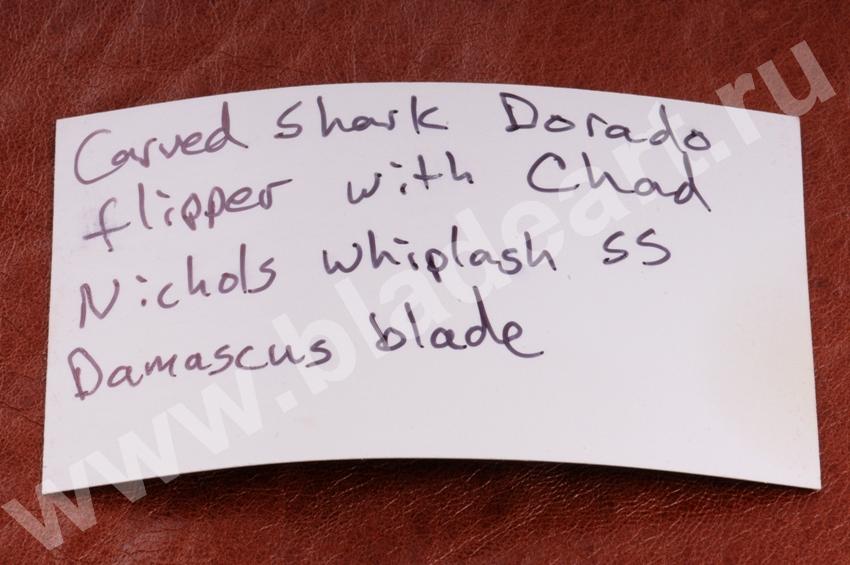 Carved Shark Dorado
flipper with Chad
Nichols whiplash SS
Damascus blade
www.bladeart.ru